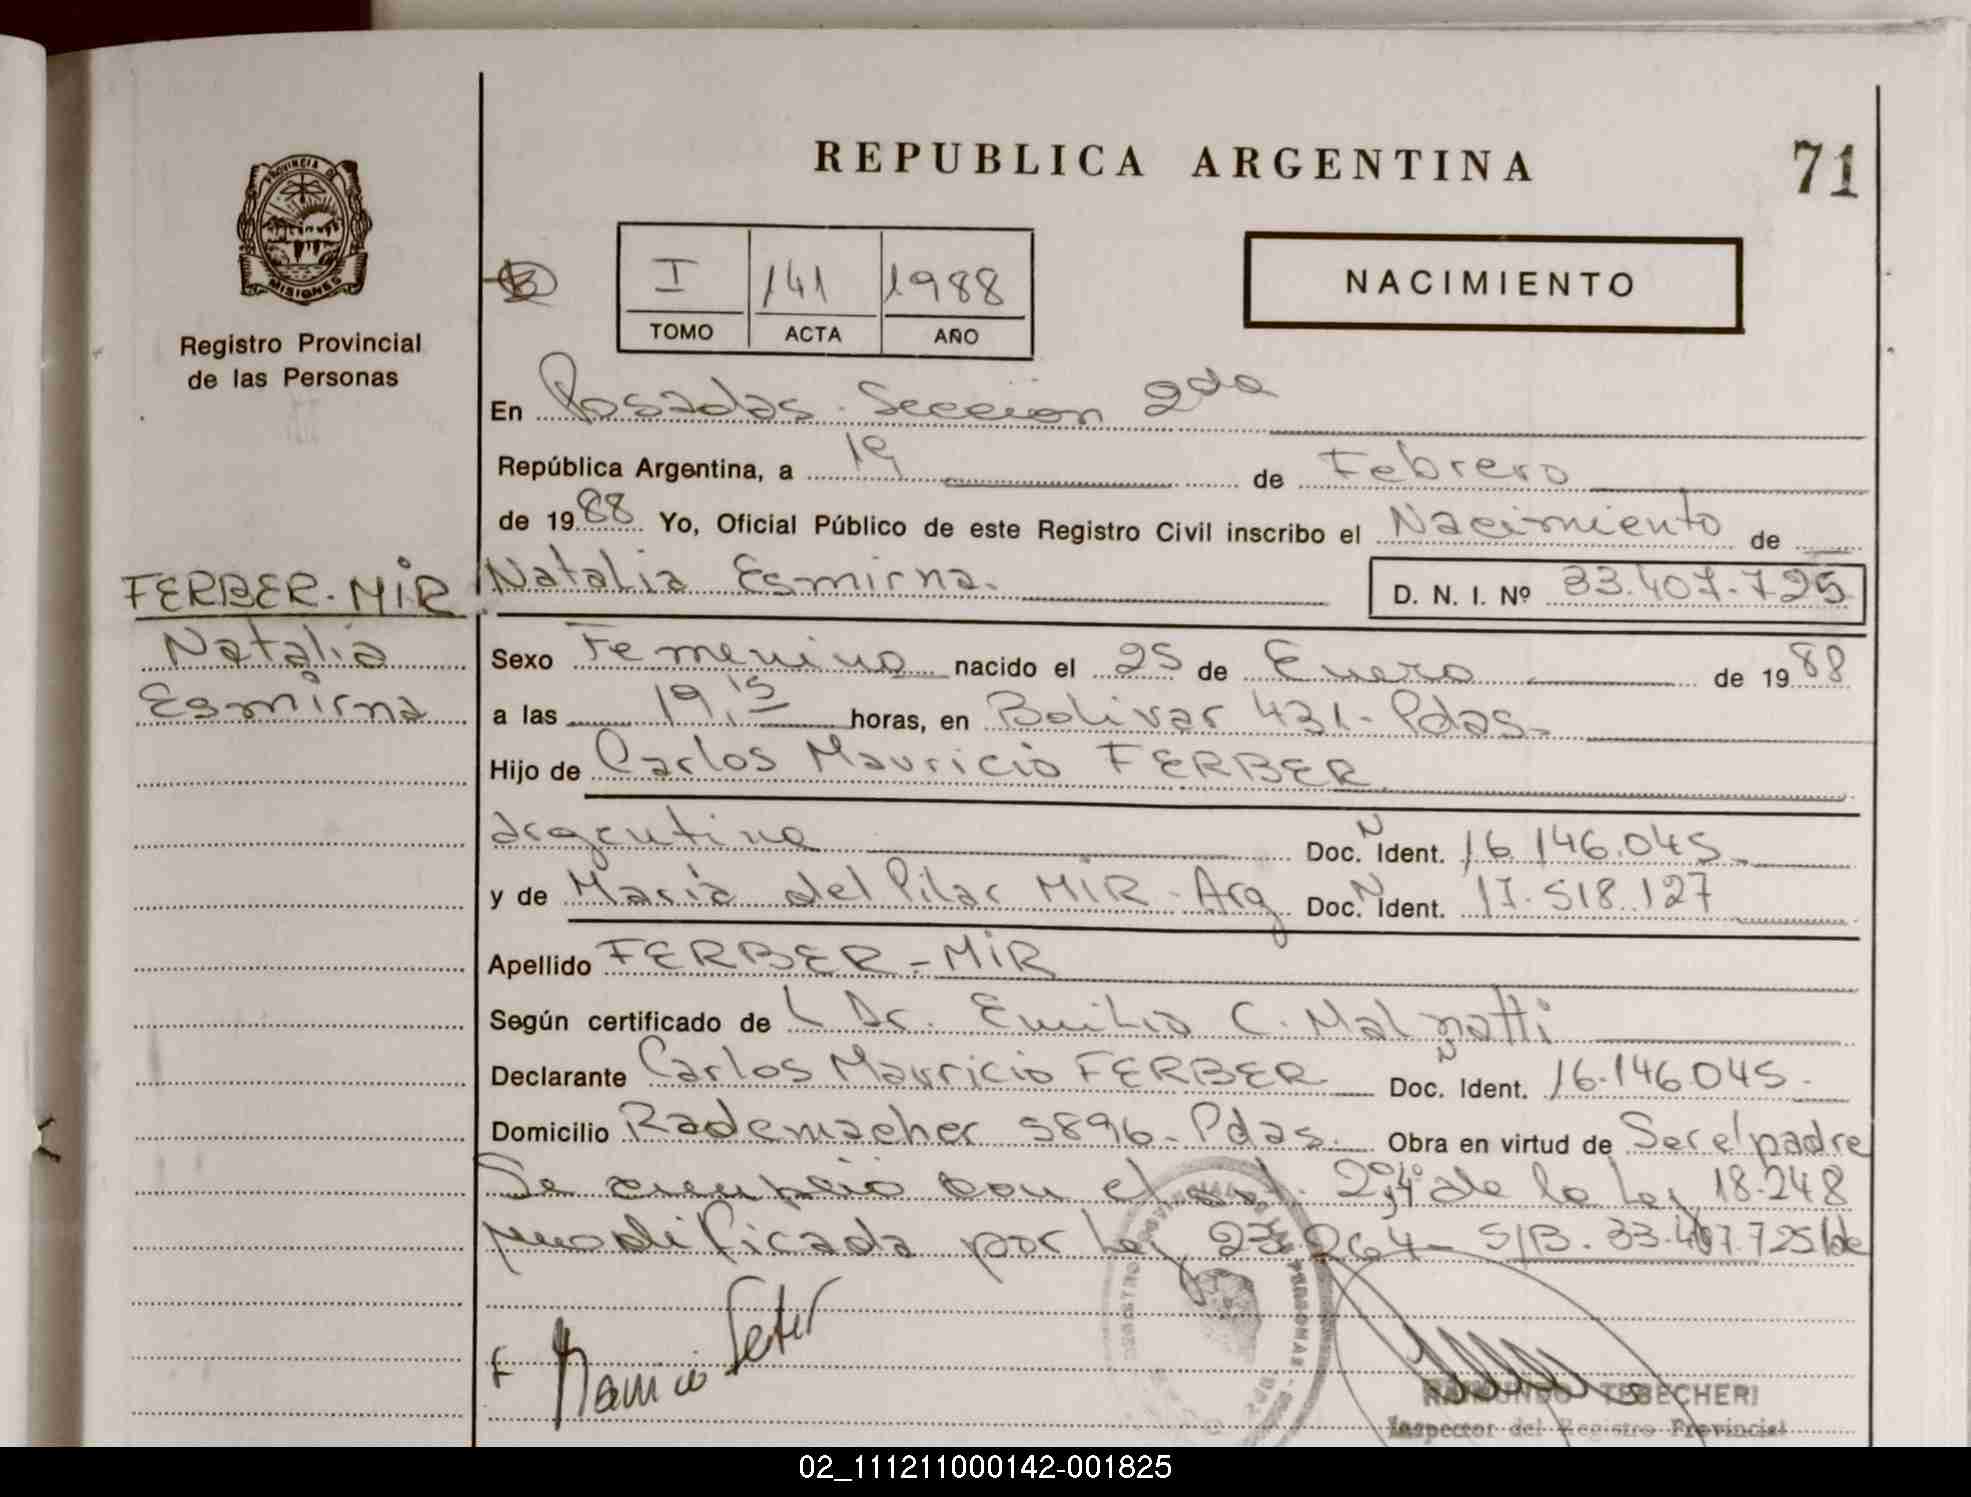 REPUBLICA ARGENTINA
71
PROVINCIA DE
MISIONES
Registro Provincial
de las Personas
I 141 1988
TOMO ACTA AÑO
NACIMIENTO
En Posadas. Seccion 2da
República Argentina, a 19 de Febrero
de 1988 Yo, Oficial Público de este Registro Civil inscribo el Nacimiento de
FERBER-MIR
Natalia
Esmirna
Natalia Esmirna. D. N. I. Nº 33.407.725
Sexo Femenino nacido el 25 de Enero de 1988
a las 19,15 horas, en Bolivar 431- Pdas.
Hijo de Carlos Mauricio FERBER
argentino Doc. N Ident. 16.146.045.
y de María del Pilar MIR - Arg Doc. N Ident. 17.518.127
Apellido FERBER-MIR
Según certificado de L Dr. Emilio C. Malnatti
Declarante Carlos Mauricio FERBER Doc. N Ident. 16.146.045.
Domicilio Rademacher 5896- Pdas. Obra en virtud de Ser el padre
Se cumplió con el art. de la Ley 18.248
modificada por Ley 23.264- S/B. 33.407.725 Vale
f Mauricio Ferber
RAIMUNDO TEBECHERI
Inspector del Registro Provincial
02_111211000142-001825